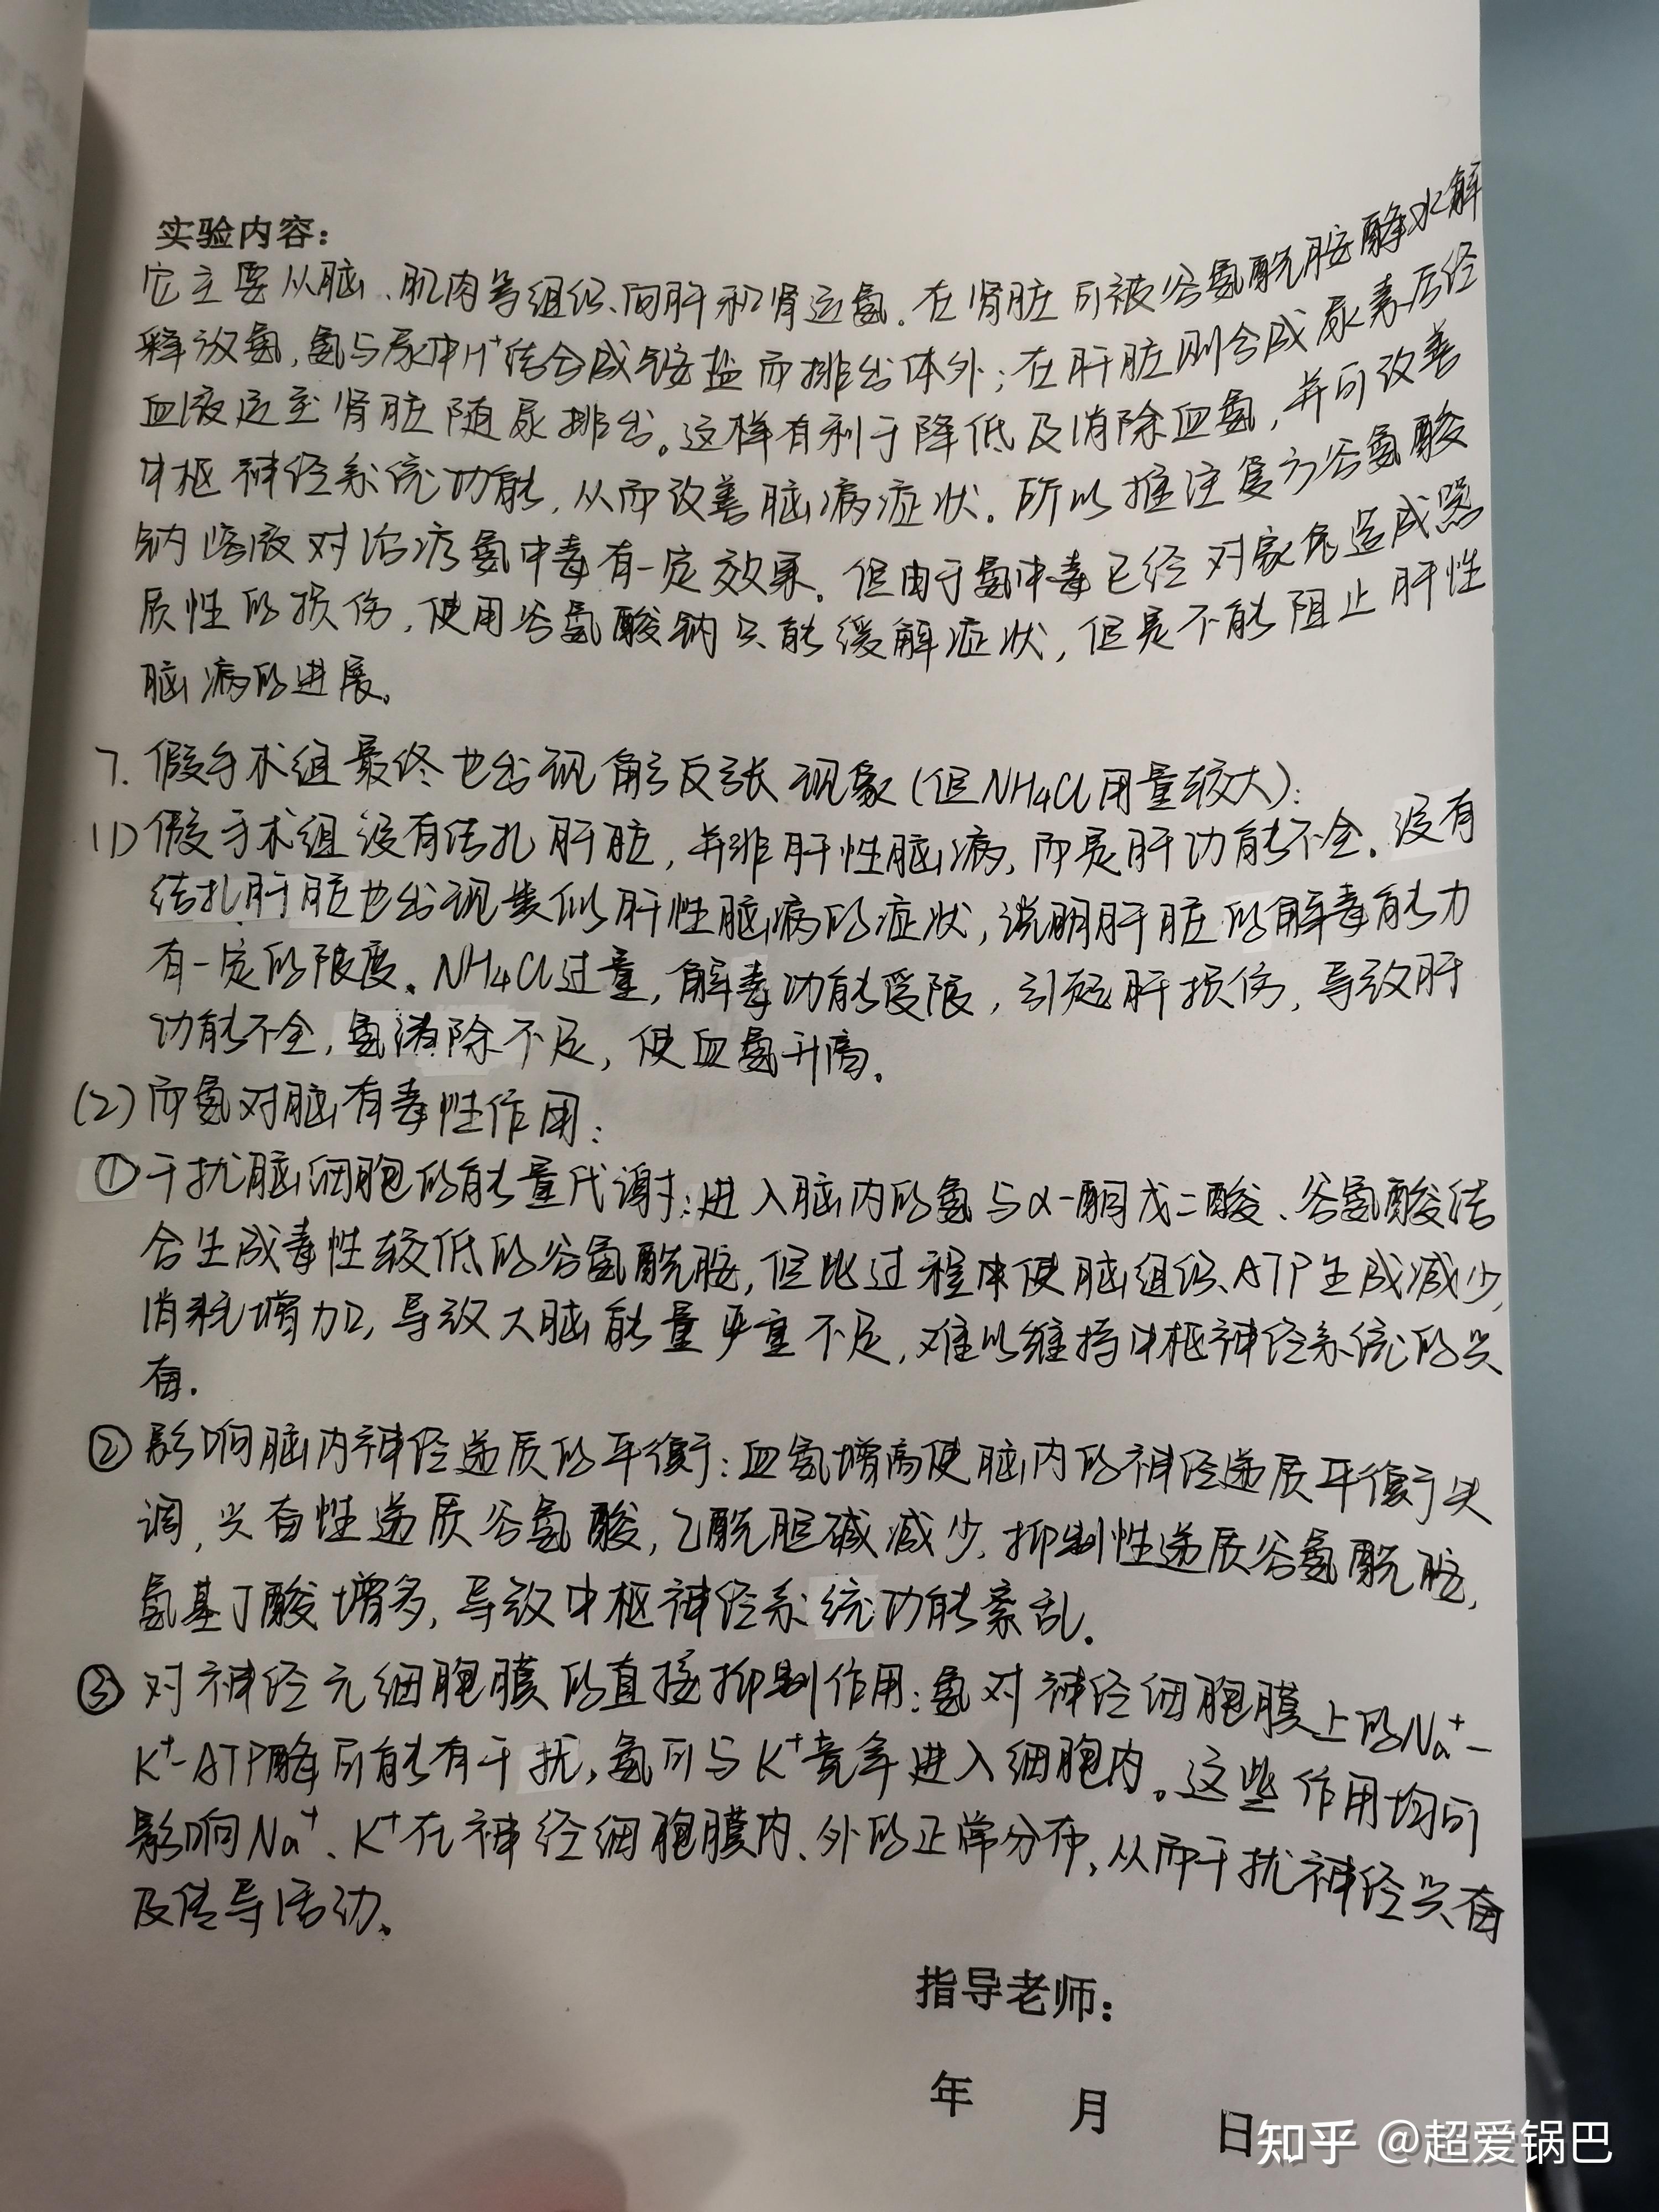 实验内容：
它主要从脑、肌肉等组织向肝和肾运氨。在肾脏可被谷氨酰胺酶水解
释放氨，氨与尿中H⁺结合成铵盐而排出体外；在肝脏则合成尿素后经
血液运至肾脏随尿排出。这样有利于降低及消除血氨，并可改善
中枢神经系统功能，从而改善脑病症状。所以推注复方谷氨酸
钠溶液对治疗氨中毒有一定效果。但由于氨中毒已经对家兔造成器
质性的损伤，使用谷氨酸钠只能缓解症状，但是不能阻止肝性
脑病的进展。
7. 假手术组最终也出现角弓反张现象（但NH₄Cl用量较大）：
(1) 假手术组没有结扎肝脏，并非肝性脑病，而是肝功能不全。没有
结扎肝脏也出现类似肝性脑病的症状，说明肝脏的解毒能力
有一定的限度。NH₄Cl过量，解毒功能受限，引起肝损伤，导致肝
功能不全，氨清除不足，使血氨升高。
(2) 而氨对脑有毒性作用：
① 干扰脑细胞的能量代谢：进入脑内的氨与α-酮戊二酸、谷氨酸结
合生成毒性较低的谷氨酰胺，但此过程中使脑组织ATP生成减少，
消耗增加，导致大脑能量严重不足，难以维持中枢神经系统的兴
奋.
② 影响脑内神经递质的平衡：血氨增高使脑内的神经递质平衡失
调，兴奋性递质谷氨酸，乙酰胆碱减少，抑制性递质谷氨酰胺，
氨基丁酸增多，导致中枢神经系统功能紊乱。
③ 对神经元细胞膜的直接抑制作用：氨对神经细胞膜上的Na⁺-
K⁺-ATP酶可能有干扰，氨可与K⁺竞争进入细胞内。这些作用均可
影响Na⁺、K⁺在神经细胞膜内、外的正常分布，从而干扰神经兴奋
及传导活动。
指导老师：
年 月 日
知乎 @超爱锅巴